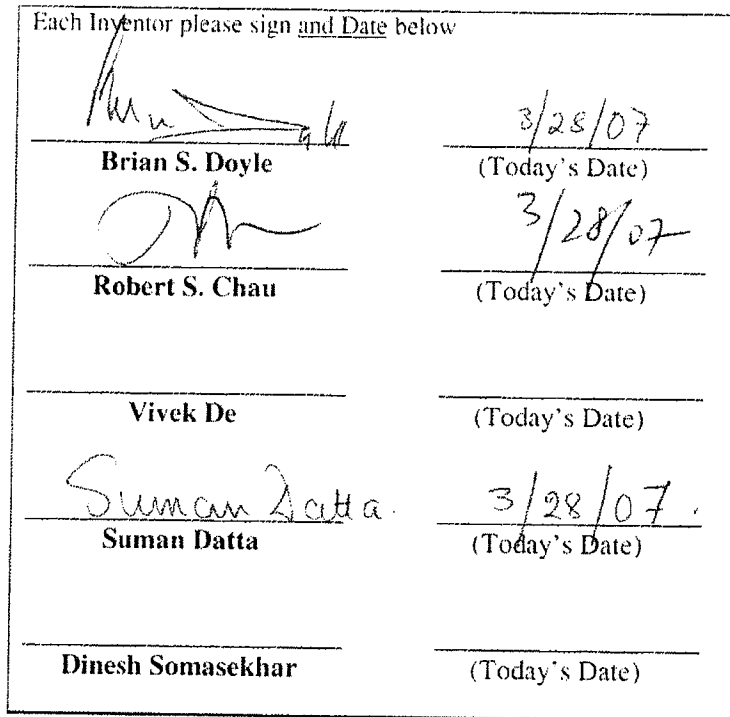 Each Inventor please sign and Date below
3/28/07
Brian S. Doyle (Today's Date)
3/28/07
Robert S. Chau (Today's Date)
Vivek De (Today's Date)
Suman Datta. 3/28/07.
Suman Datta (Today's Date)
Dinesh Somasekhar (Today's Date)